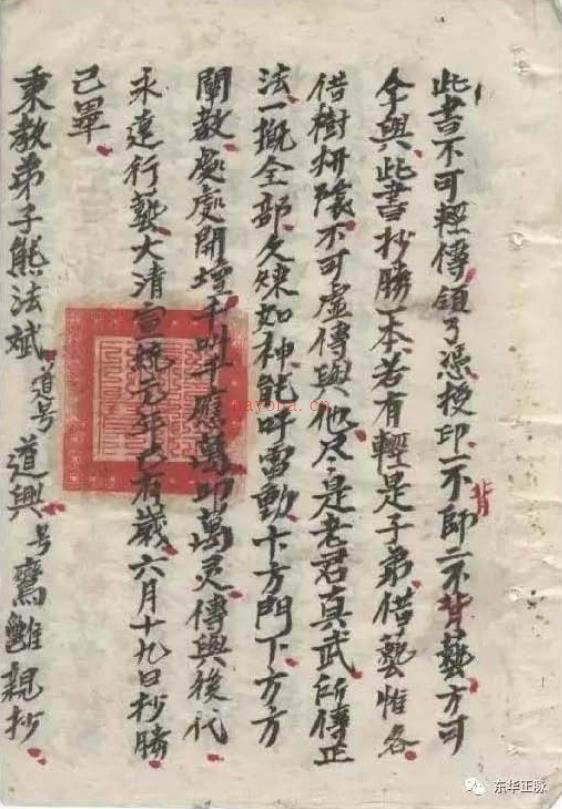 此書不可輕傳領了憑授印一不背師二不背藝方可
今與此書抄勝一本若有輕是子弟借藝惟名
借樹 不可虛傳與他尽是老君真武所傳正
法一概全部久煉如神能吽雷動十方門下方方
闡教處處開壇千叫千應萬叩萬灵傳與後代
永遠行藝大清宣統元年己酉歲六月十九日抄勝
己畢
秉教弟子熊法斌道号道興号 親抄
nayona.cn
东华正脉